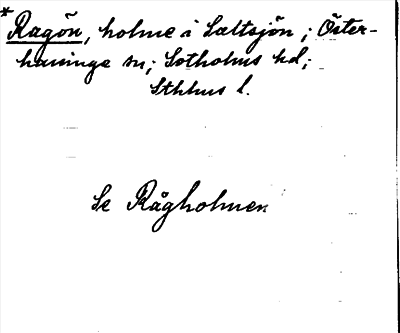 * Ragön, holme i Saltsjön; Öster-
haninge sn; Sotholms hd;
Sthlms l.
Se Rågholmen